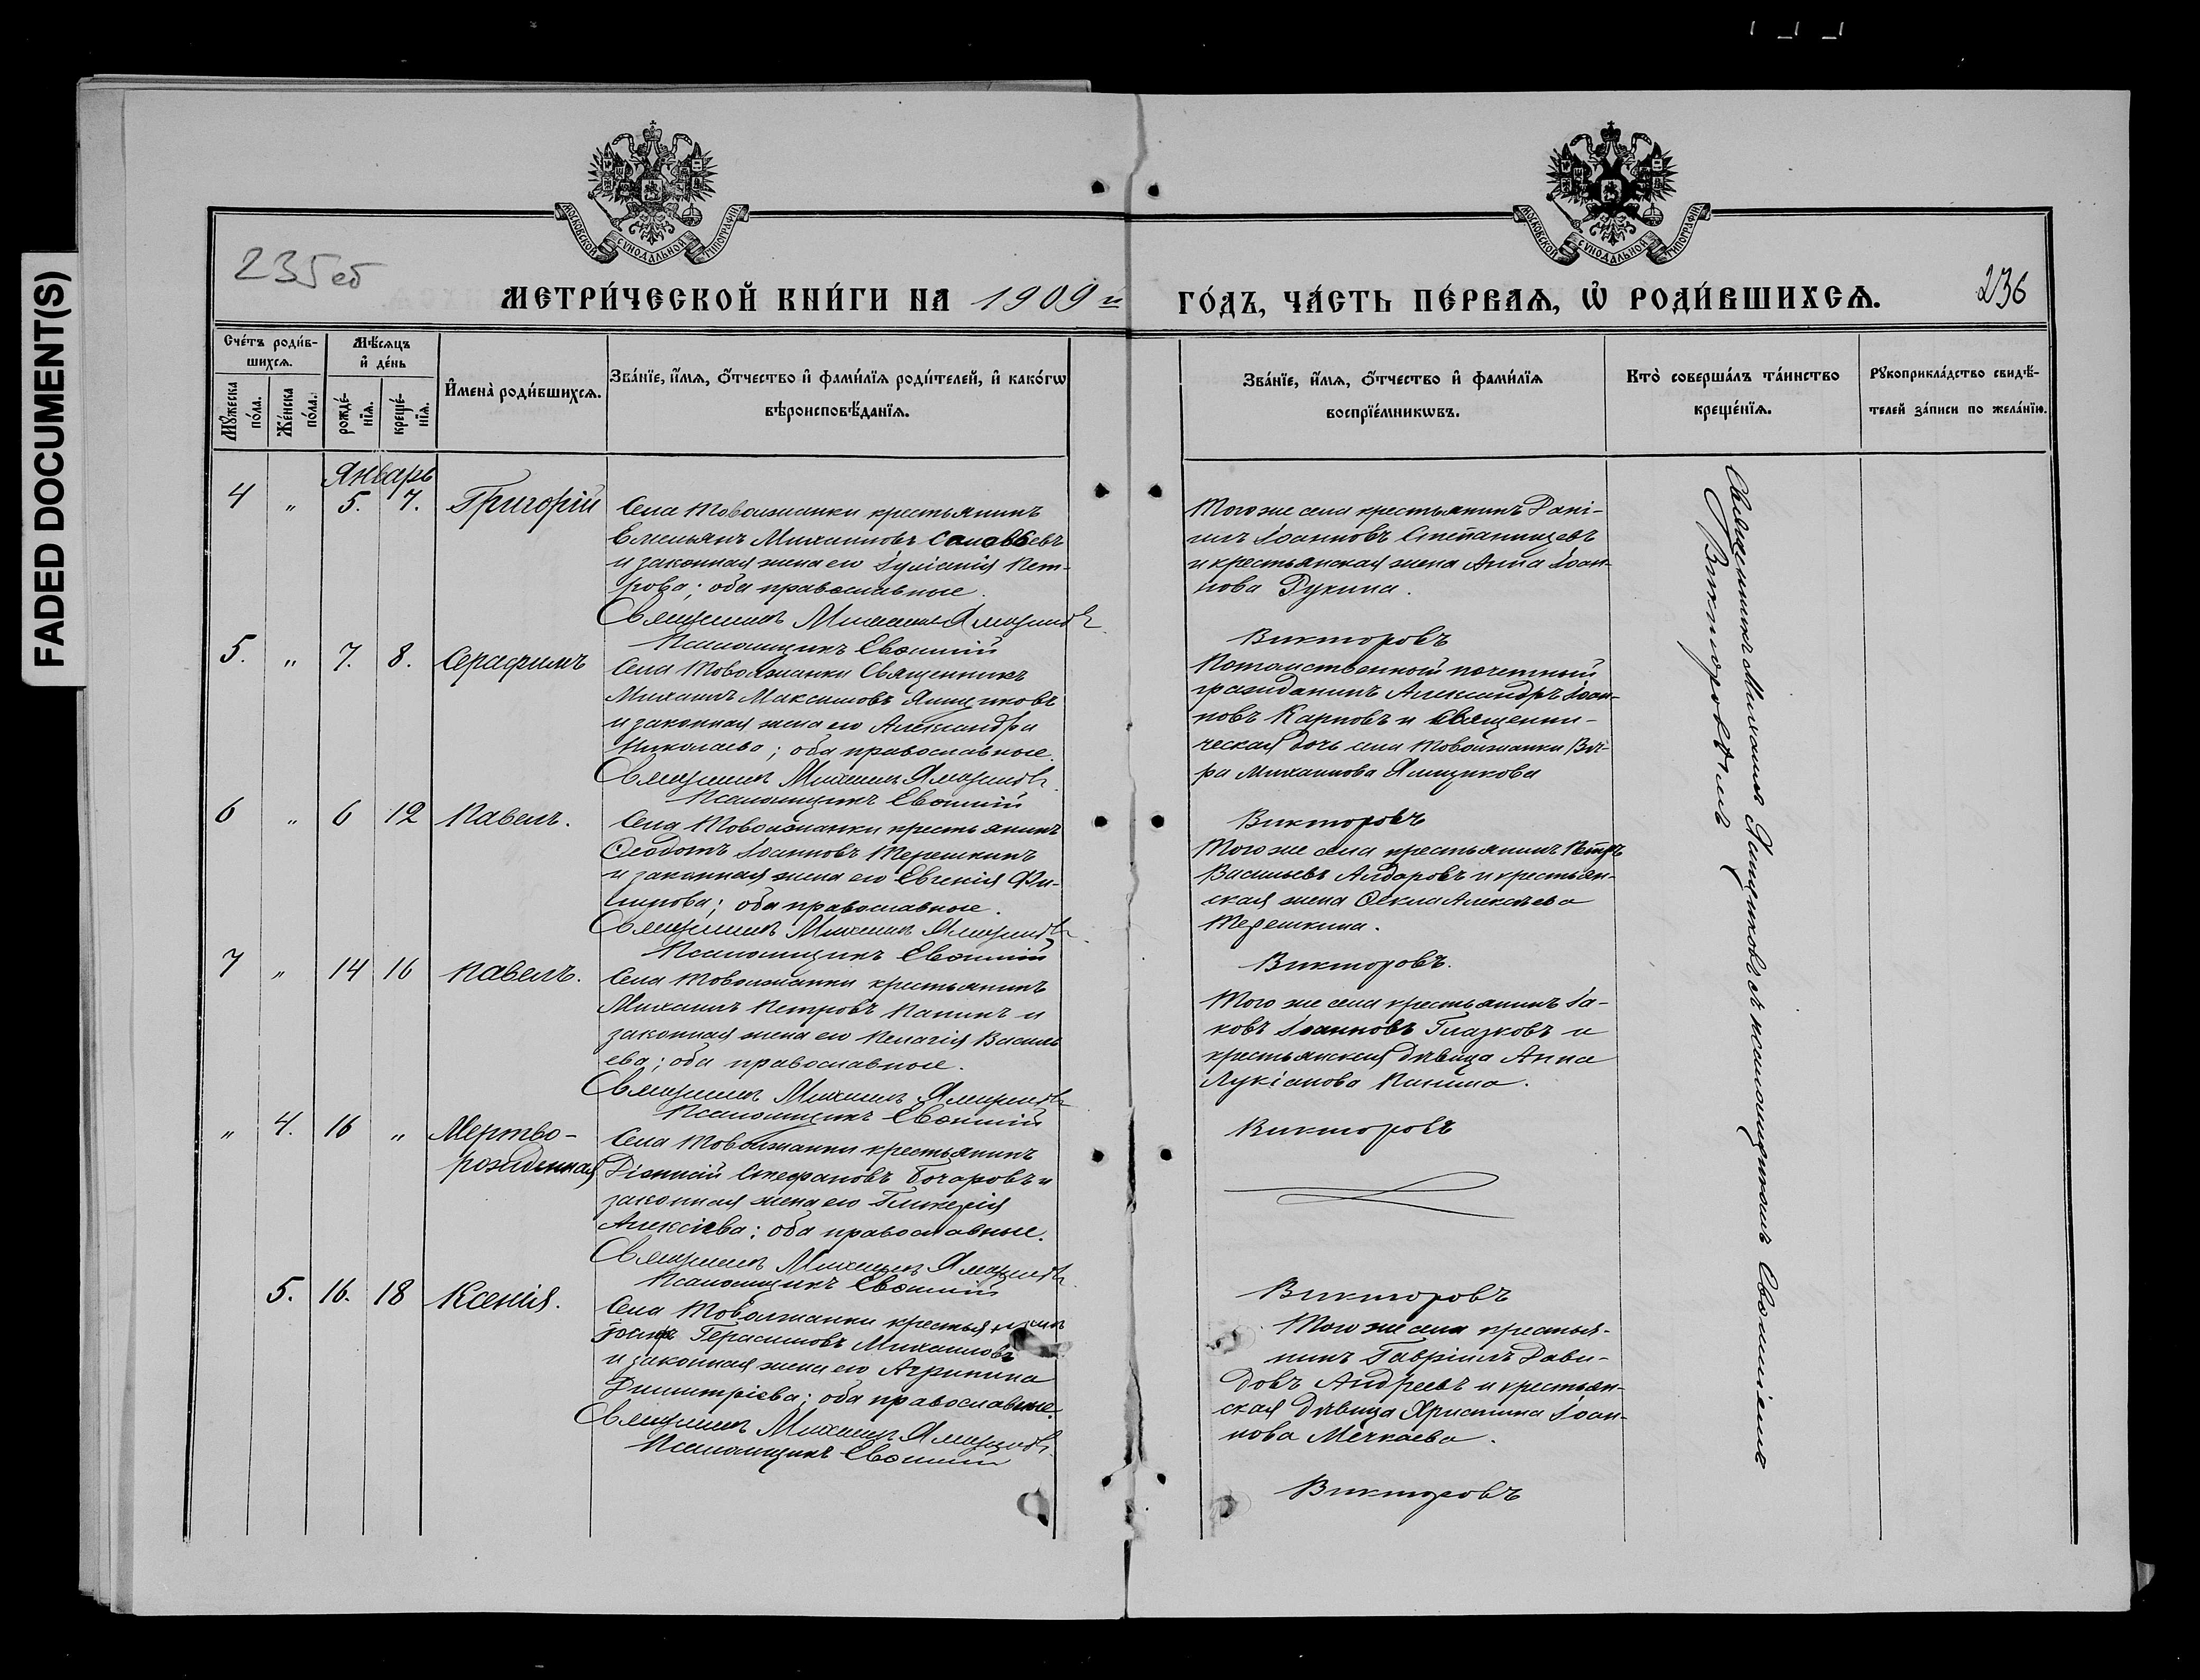 FADED DOCUMENT(S)
МОСКОВСКОЙ СѴНОДАЛЬНОЙ ТИПОГРАФІИ
МОСКОВСКОЙ СѴНОДАЛЬНОЙ ТИПОГРАФІИ
235об
236
МЕТРИ́ЧЕСКОЙ КНИ́ГИ НА 1909й ГО́ДЪ, ЧА́СТЬ ПЕ́РВАѦ, Ѡ҆ РОДИ́ВШИХСѦ.
Сче́тъ роди́в-
шихсѧ.
Мꙋ́жеска по́ла.
Же́нска по́ла.
Мѣ́сѧцъ
и҆ де́нь
рожде́-
нїѧ.
креще́-
нїѧ.
И҆мена̀ роди́вшихсѧ.
Зва́нїе, и҆́мѧ, ѻ҆́тчество и҆ фами́лїѧ роди́телей, и҆ како́гѡ
вѣроисповѣ́данїѧ.
Зва́нїе, и҆́мѧ, ѻ҆́тчество и҆ фами́лїѧ
воспрїе́мникѡвъ.
Кто̀ соверша́лъ та́инство
креще́нїѧ.
Рꙋкоприкла́дство свидѣ́-
телей за́писи по жела́нїю.
Январь
4 " 5. 7. Григорій
Села Товолжанки крестьянинъ
Емельянъ Михаиловъ Соловьевъ
и законная жена его Іуліанія Пет-
рова; оба православные.
Священникъ Михаилъ Ямщиковъ
Псаломщикъ Евѳимій
Того же села крестьянинъ Дані-
илъ Іоанновъ Степанищевъ
и крестьянская жена Анна Іоан-
нова Дукина.
Викторовъ
5. " 7. 8. Серафимъ
Села Товолжанки Священникъ
Михаилъ Максимовъ Ямщиковъ
и законная жена его Александра
Николаева; оба православные.
Священникъ Михаилъ Ямщиковъ
Псаломщикъ Евѳимій
Потомственный почетный
гражданинъ Александръ Іоан-
новъ Карповъ и священни-
ческая дочь села Товолжанки Вѣ-
ра Михаилова Ямщикова
Викторовъ
6 " 6 12 Павелъ.
Села Товолжанки крестьянинъ
Ѳеодотъ Іоанновъ Терешкинъ
и законная жена его Евгенія Фи-
липова; оба православные.
Священникъ Михаилъ Ямщиковъ
Псаломщикъ Евѳимій
Того же села крестьянинъ Петръ
Васильевъ Алдаровъ и крестьян-
ская жена Ѳекла Алексѣева
Терешкина.
Викторовъ.
7 " 14 16 Павелъ.
Села Товолжанки крестьянинъ
Михаилъ Петровъ Панинъ и
законная жена его Пелагія Василь
ева; оба православные.
Священникъ Михаилъ Ямщиковъ
Псаломщикъ Евѳимій
Того же села крестьянинъ Іа-
ковъ Іоанновъ Глазковъ и
крестьянская дѣвица Анна
Лукіанова Панина.
Викторовъ
" 4. 16 " Мертво-
рожденная
Села Товолжанки крестьянинъ
Діонисій Стефановъ Бочаровъ и
законная жена его Гликерія
Алексіева; оба православные.
Священникъ Михаилъ Ямщиковъ
Псаломщикъ Евѳимій
Викторовъ
5. 16. 18 Ксенія.
Села Товолжанки крестьянинъ
Іосифъ Герасимовъ Михаиловъ
и законная жена его Агрипина
Димитріева; оба православные.
Священникъ Михаилъ Ямщиковъ
Псаломщикъ Евѳимій
Того же села крестья-
нинъ Гавріилъ Дави-
довъ Андреевъ и крестьян-
ская дѣвица Христина Іоан-
нова Мечкаева.
Викторовъ
Священникъ Михаилъ Ямщиковъ съ псаломщикомъ Евѳиміемъ
Викторовымъ